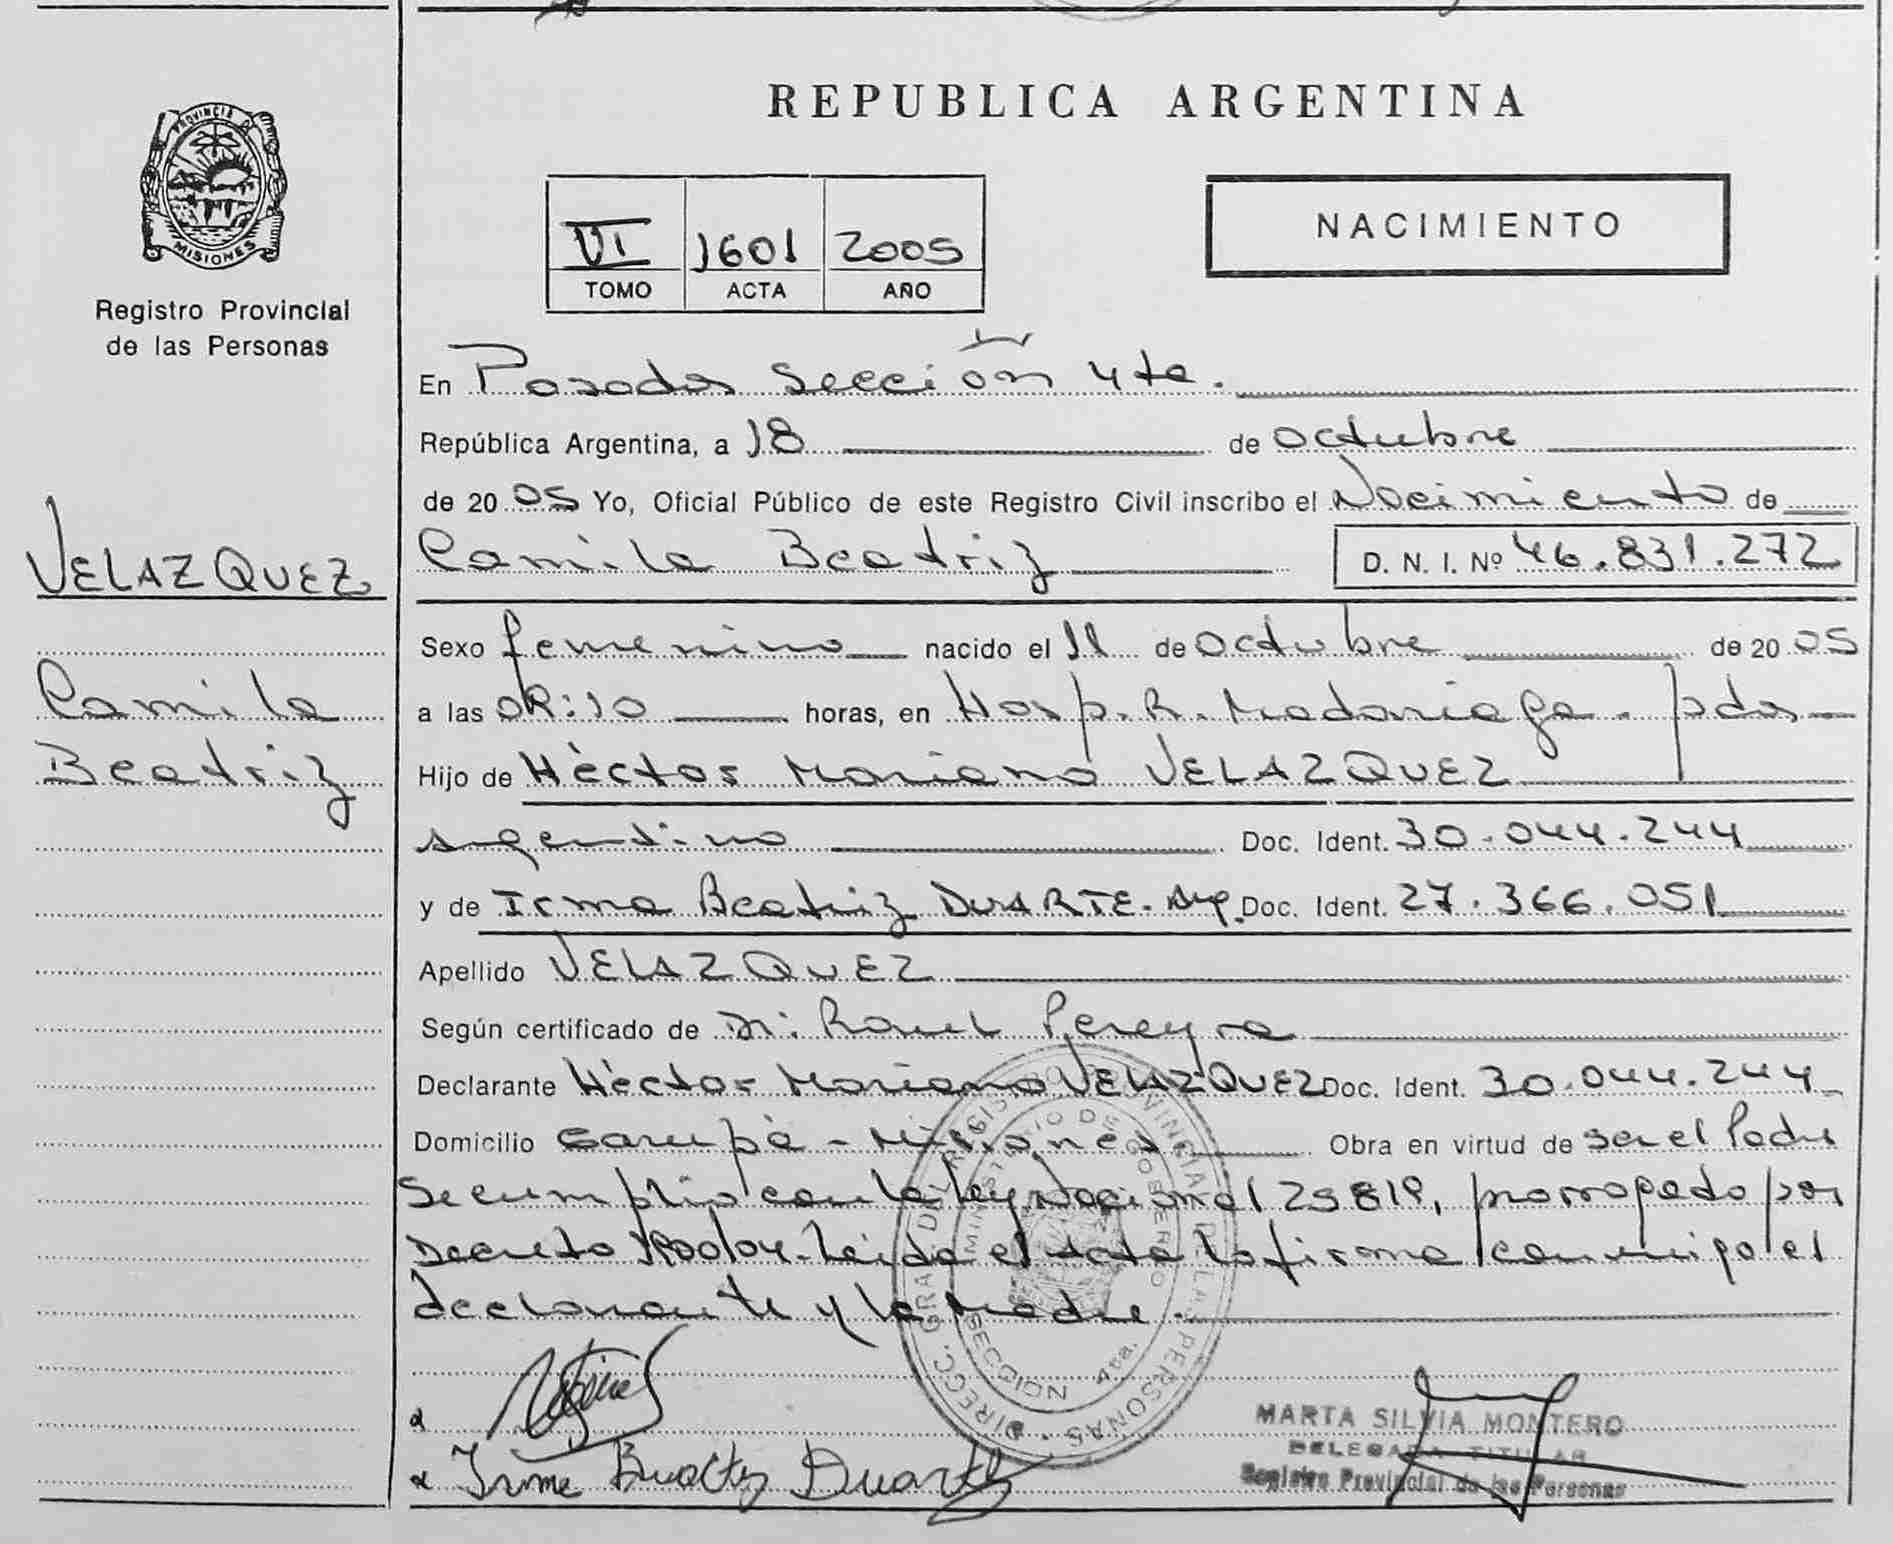 REPUBLICA ARGENTINA
PROVINCIA DE
MISIONES
Registro Provincial
de las Personas
VI 1601 2005
TOMO ACTA AÑO
NACIMIENTO
En Posadas Sección 4ta.
República Argentina, a 18 de octubre
de 2005 Yo, Oficial Público de este Registro Civil inscribo el Nacimiento de
Camila Beatriz D. N. I. Nº 46.831.272
VELAZQUEZ
Camila
Beatriz
Sexo femenino nacido el 11 de octubre de 2005
a las horas, en Hosp. R. Madariaga. pdas
Hijo de Héctor Mariano VELAZQUEZ
argentino Doc. Ident. 30.044.244
y de Irma Beatriz DUARTE. Arg. Doc. Ident. 27.366.051
Apellido VELAZQUEZ
Según certificado de Dr. Pereyra
Declarante Héctor Mariano VELAZQUEZ Doc. Ident. 30.044.244
Domicilio Garupá - Misiones Obra en virtud de ser el Padre
Se cumplió con la ley Nacional 25819, prorrogado por
Decreto Leída el Acta la firma conmigo el
declarante y la Madre.
DIRECC. GRAL. DEL REGISTRO PROVINCIAL DE LAS PERSONAS
MINISTERIO DE GOBIERNO
SECCION 4ta.
Irma Beatriz Duarte
MARTA SILVIA MONTERO
DELEGADA TITULAR
Registro Provincial de las Personas